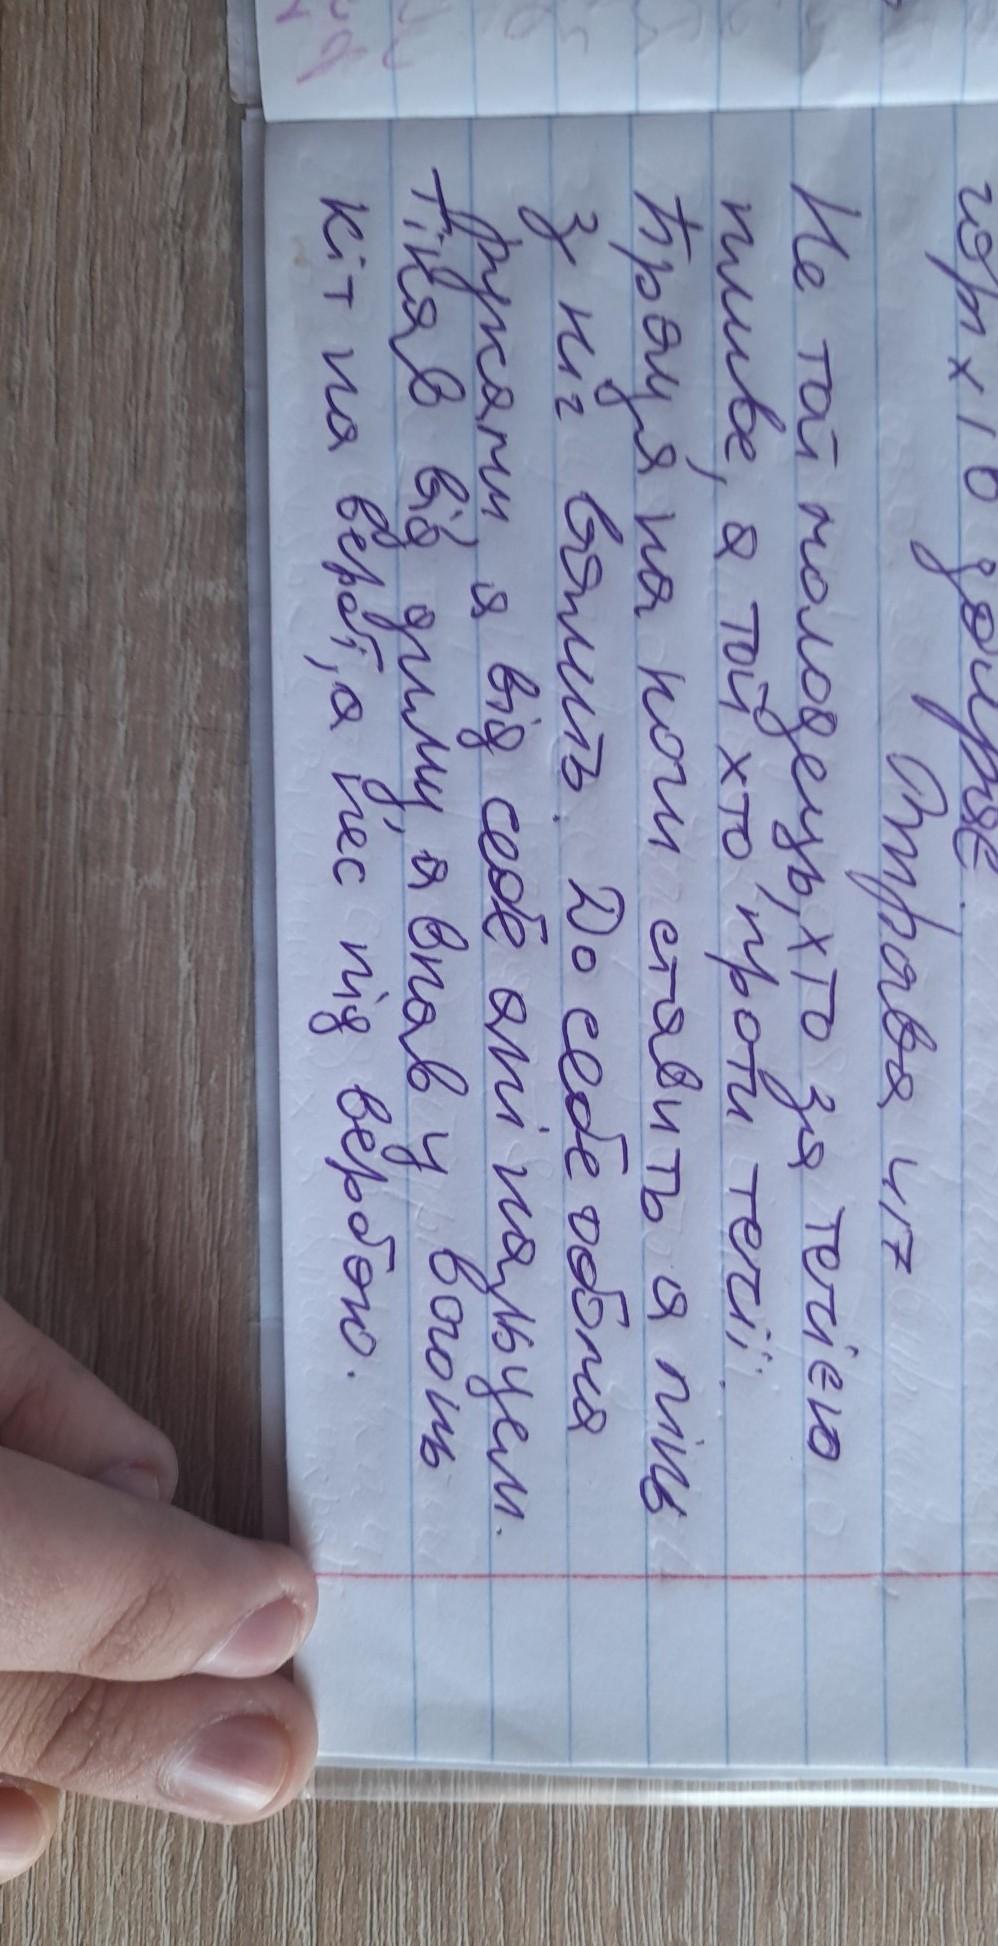 Вправа 417
Не той молодець, хто за течією
пливе, а той хто, проти течії.
Праця на ноги ставить а лінь
з ніг валить. До себе обома
руками, а від себе ані пальцем.
Тікав від диму, а впав у вогонь
Кіт на вербі, а пес під вербою.